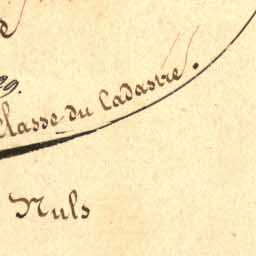 Classe du Cadastre.
Nuls